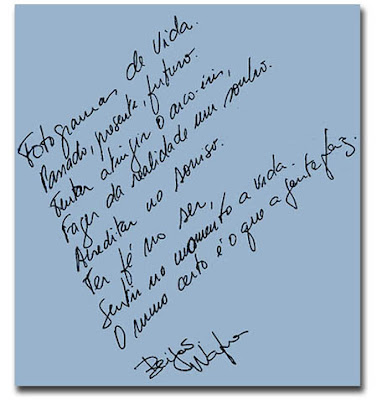 Fotogramas de vida.
Passado, presente, futuro.
Tentar atingir o arco-íris,
Fazer da realidade um sonho.
Acreditar no sorriso.
Ter fé no ser,
Sentir no momento a vida.
O rumo certo é o que a gente faz.
Beijos